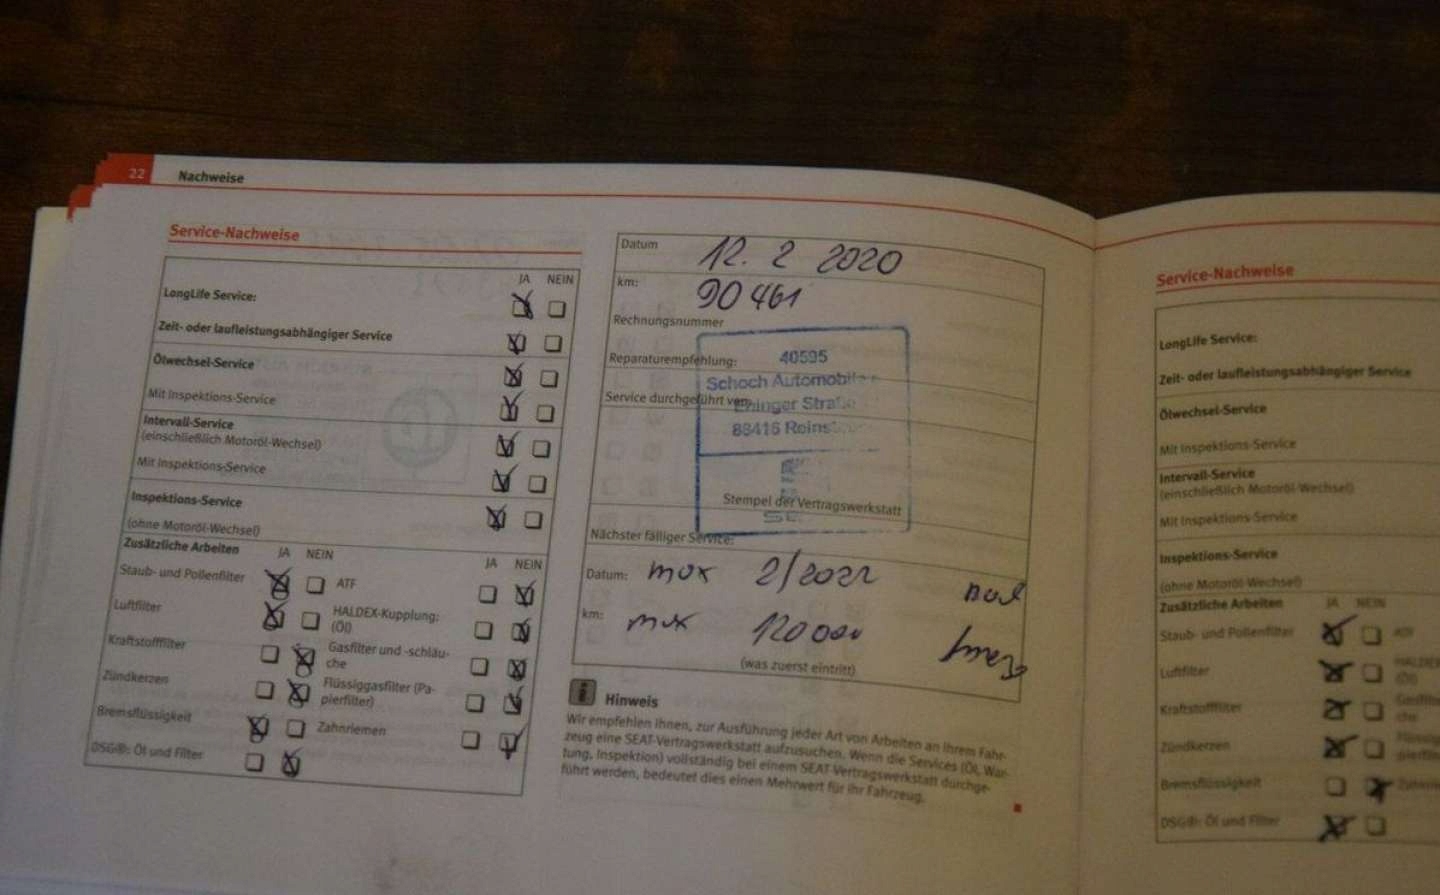 22 Nachweise
Service-Nachweise
JA NEIN
LongLife Service:
Zeit- oder laufleistungsabhängiger Service
Ölwechsel-Service
Mit Inspektions-Service
Intervall-Service
(einschließlich Motoröl-Wechsel)
Mit Inspektions-Service
Inspektions-Service
(ohne Motoröl-Wechsel)
Zusätzliche Arbeiten JA NEIN JA NEIN
Staub- und Pollenfilter ATF
Luftfilter HALDEX-Kupplung:
(Öl)
Kraftstofffilter Gasfilter und -schläu-
che
Zündkerzen Flüssiggasfilter (Pa-
pierfilter)
Bremsflüssigkeit Zahnriemen
DSG®: Öl und Filter
Datum 12. 2 2020
km: 90 461
Rechnungsnummer
Reparaturempfehlung:
Service durchgeführt von:
40595
Schoch Automobile
Ehinger Straße
88416
Stempel der Vertragswerkstatt
Nächster fälliger Service:
Datum: max 2/2022
km: max 120 000
(was zuerst eintritt)
i Hinweis
Wir empfehlen Ihnen, zur Ausführung jeder Art von Arbeiten an Ihrem Fahr-
zeug eine SEAT-Vertragswerkstatt aufzusuchen. Wenn die Services (Öl, War-
tung, Inspektion) vollständig bei einem SEAT-Vertragswerkstatt durchge-
führt werden, bedeutet dies einen Mehrwert für Ihr Fahrzeug.
Service-Nachweise
LongLife Service:
Zeit- oder laufleistungsabhängiger Service
Ölwechsel-Service
Mit Inspektions-Service
Intervall-Service
(einschließlich Motoröl-Wechsel)
Mit Inspektions-Service
Inspektions-Service
(ohne Motoröl-Wechsel)
Zusätzliche Arbeiten JA NEIN
Staub- und Pollenfilter ATF
Luftfilter
(Öl)
Kraftstofffilter
che
Zündkerzen
Bremsflüssigkeit
DSG®: Öl und Filter